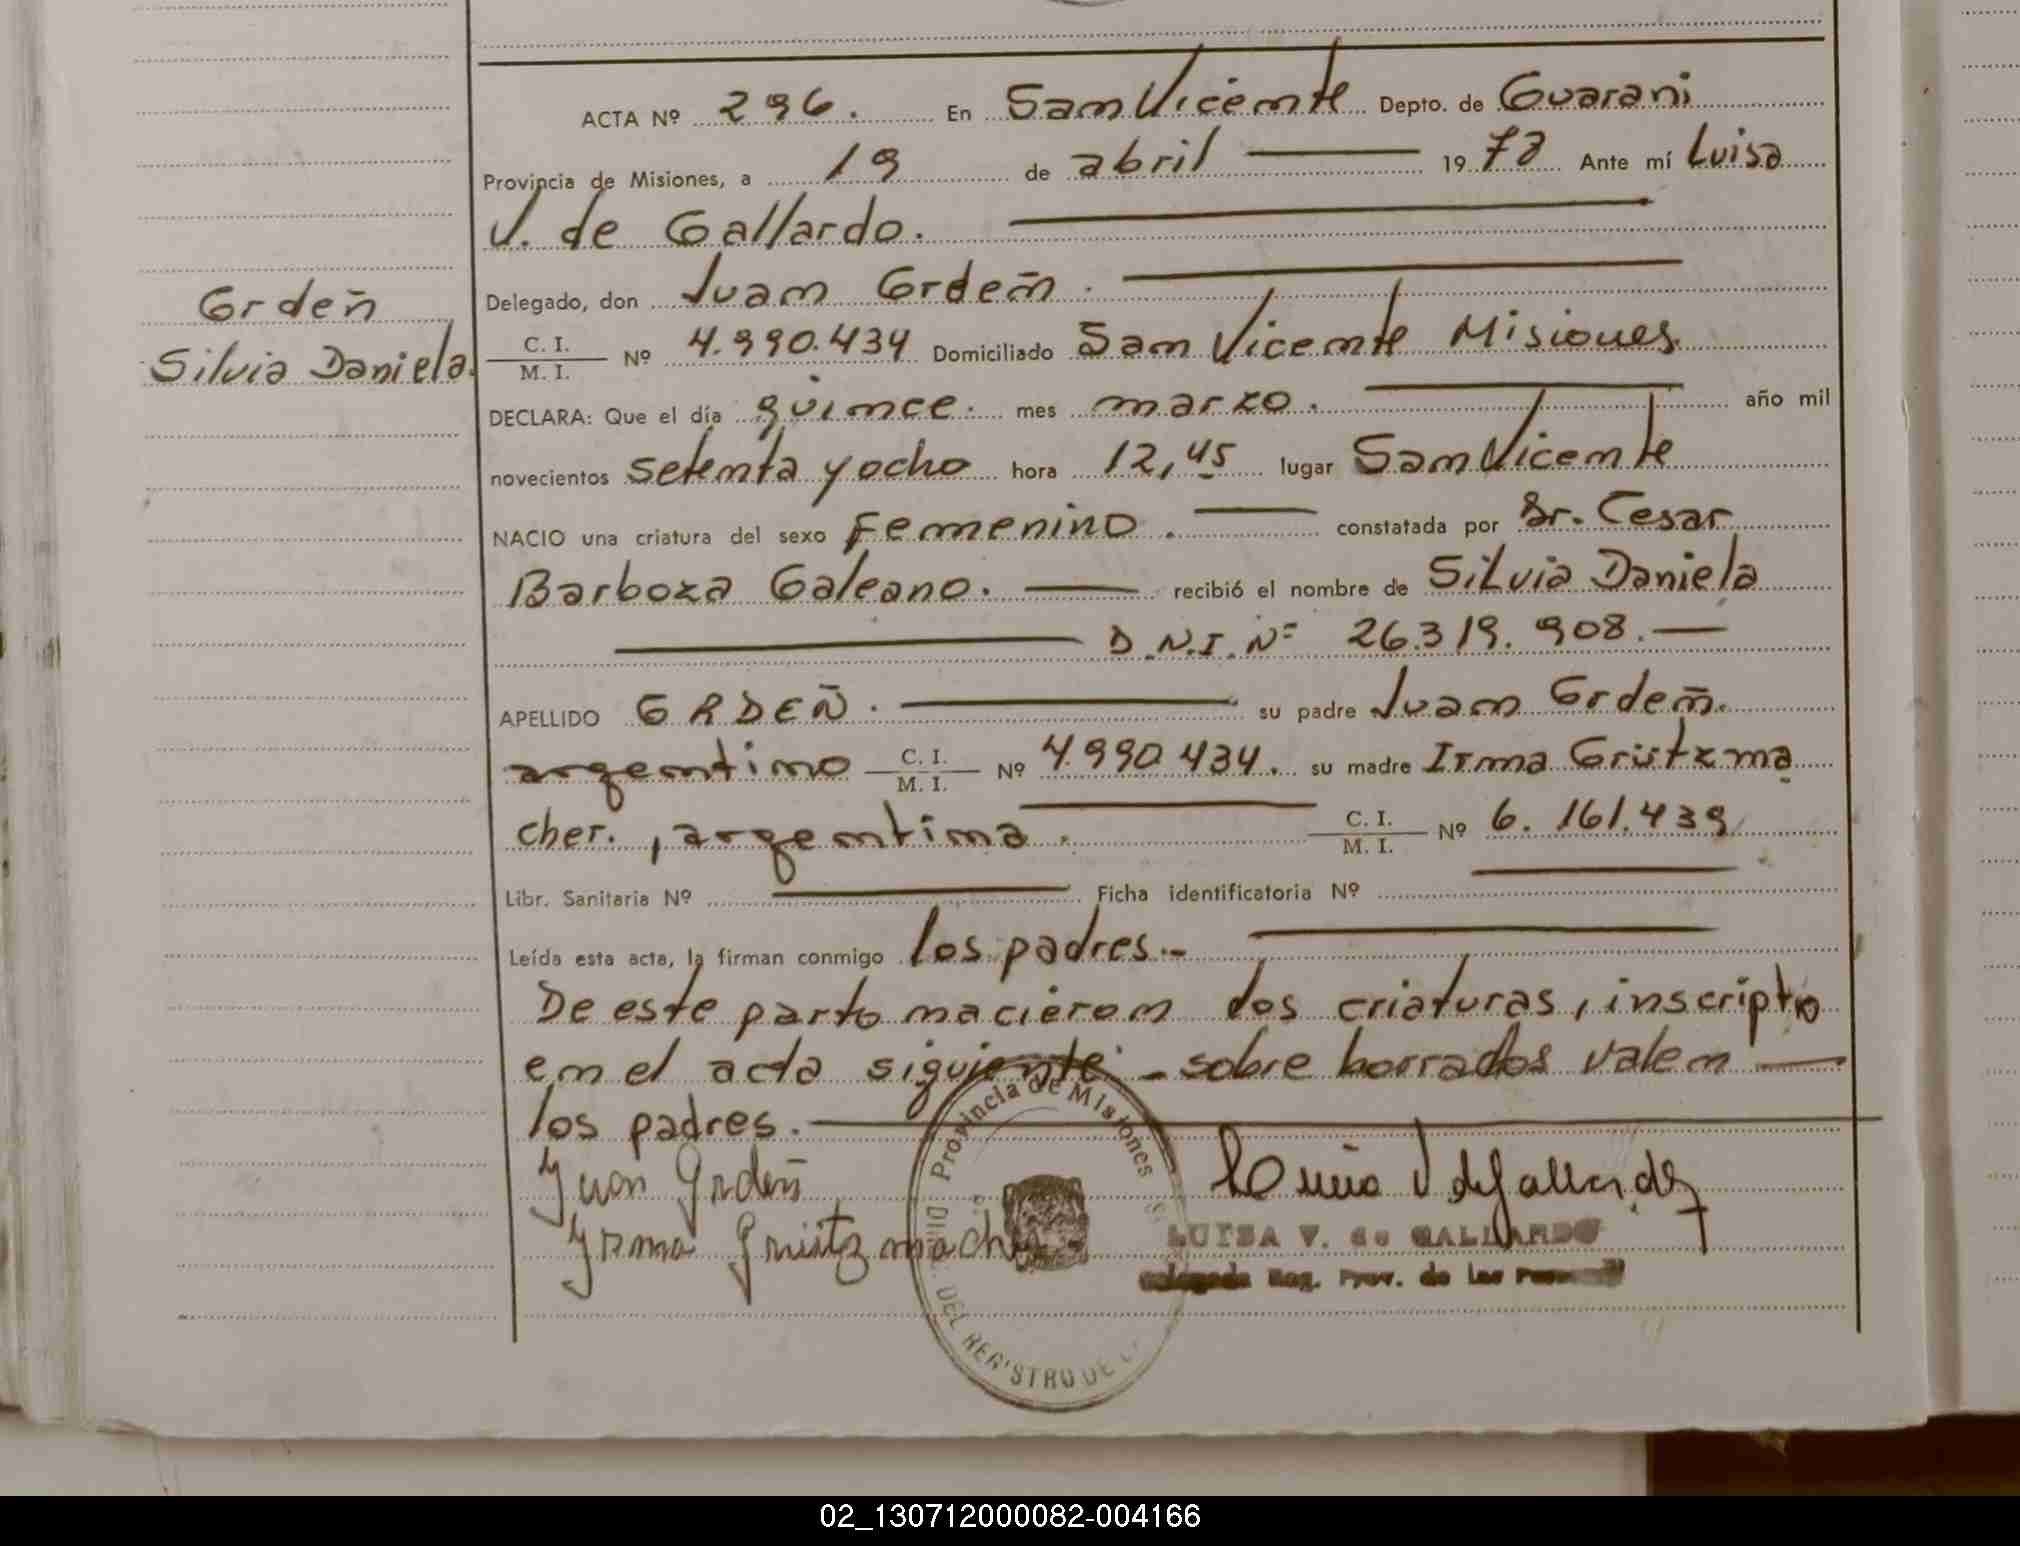 ACTA Nº 296. En San Vicente Depto. de Guarani
Provincia de Misiones, a 19 de abril 19 78 Ante mí Luisa
V. de Gallardo.
Delegado, don Juan Grdeñ.
Grdeñ
Silvia Daniela.
C. I.
M. I. Nº 4.990.434 Domiciliado San Vicente Misiones.
DECLARA: Que el día quince. mes marzo. año mil
novecientos setenta y ocho hora 12,45 lugar San Vicente
NACIO una criatura del sexo Femenino. constatada por Dr. Cesar
Barboza Galeano. recibió el nombre de Silvia Daniela
D.N.I. Nº 26.319.908.
APELLIDO GRDEÑ. su padre Juan Grdeñ.
argentino C. I.
M. I. Nº 4.990.434. su madre Irma Grützma
cher., argentina. C. I.
M. I. Nº 6.161.439
Libr. Sanitaria Nº Ficha identificatoria Nº
Leída esta acta, la firman conmigo los padres.-
De este parto nacieron dos criaturas, inscripto
en el acta siguiente.- sobre borrados valen
los padres.
Juan Grdeñ
Luisa V de Gallardo
Yrma Grützmacher
LUISA V. de GALLARDO
Delegada Reg. Prov. de las
Provincia de Misiones
DEL REGISTRO DE
02_130712000082-004166